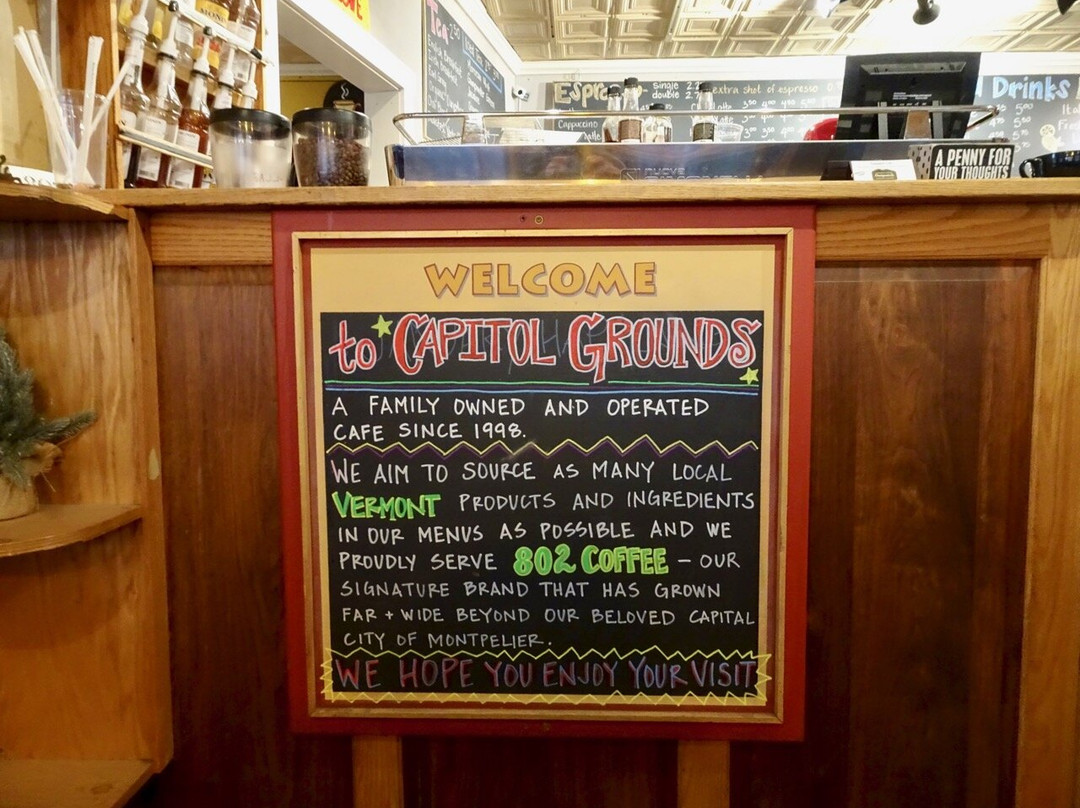 Tea 2.50
Espresso single double extra shot of espresso
Drinks
Cappuccino
A PENNY FOR
YOUR THOUGHTS
WELCOME
to CAPITOL GROUNDS
A FAMILY OWNED AND OPERATED
CAFE SINCE 1998.
WE AIM TO SOURCE AS MANY LOCAL
VERMONT PRODUCTS AND INGREDIENTS
IN OUR MENUS AS POSSIBLE AND WE
PROUDLY SERVE 802 COFFEE - OUR
SIGNATURE BRAND THAT HAS GROWN
FAR + WIDE BEYOND OUR BELOVED CAPITAL
CITY OF MONTPELIER.
WE HOPE YOU ENJOY YOUR VISIT